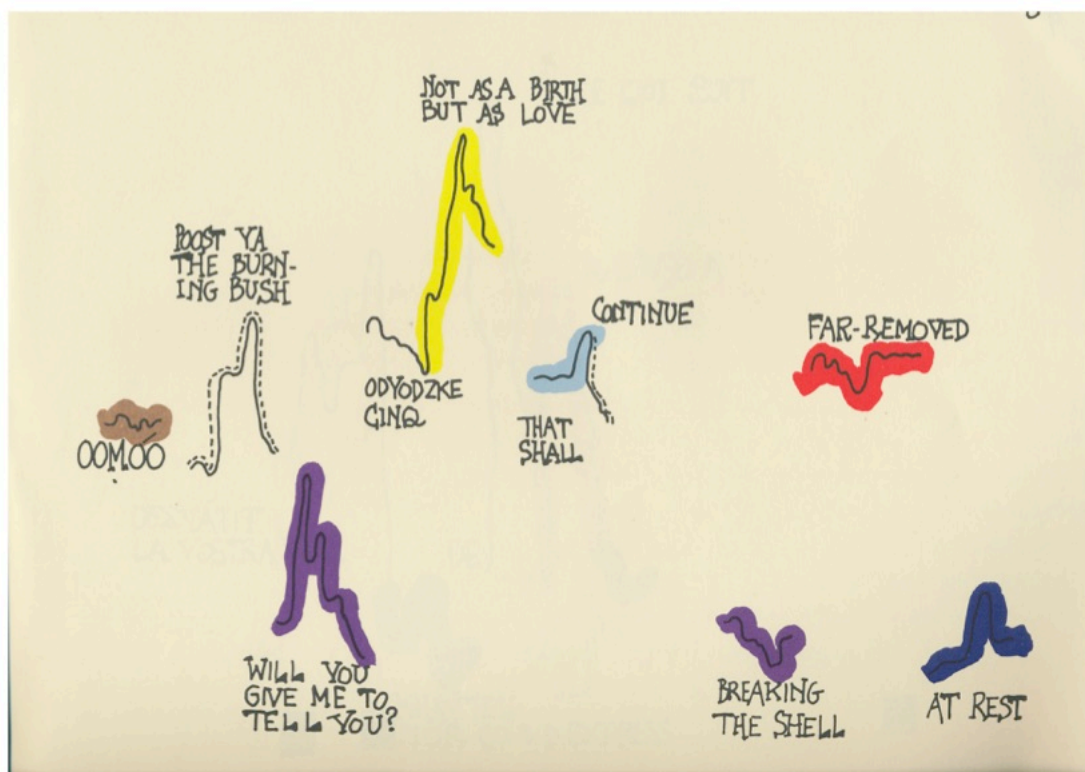 NOT AS A BIRTH
BUT AS LOVE
POOST YA
THE BURN-
ING BUSH
CONTINUE
FAR-REMOVED
ODYODZKE
CINQ
THAT
SHALL
OOMOO
WILL YOU
GIVE ME TO
TELL YOU?
BREAKING
THE SHELL
AT REST